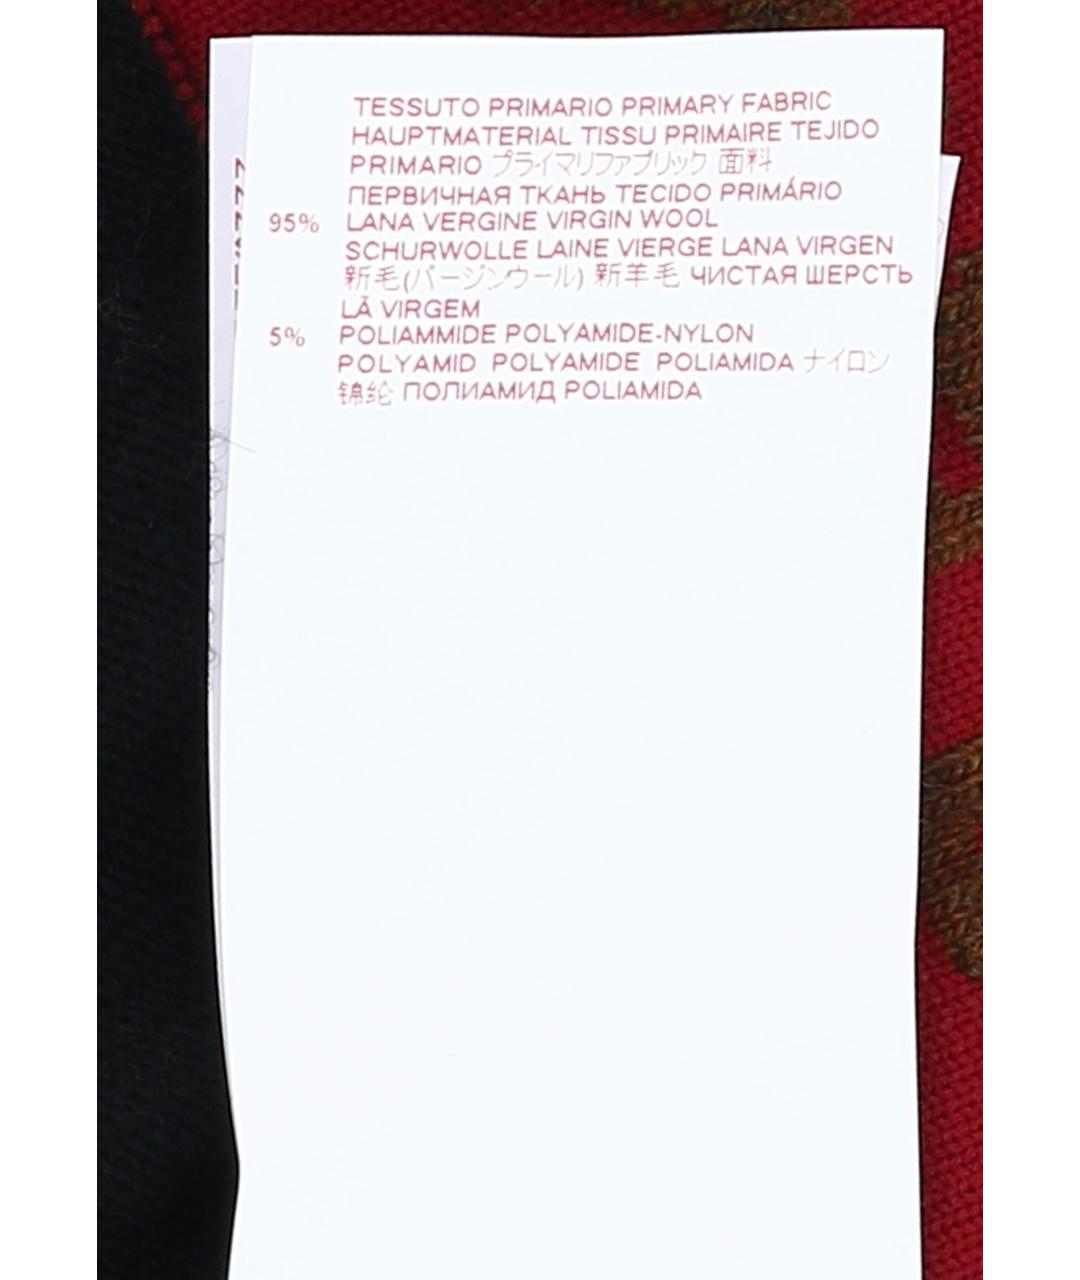 TESSUTO PRIMARIO PRIMARY FABRIC
HAUPTMATERIAL TISSU PRIMAIRE TEJIDO
PRIMARIO プライマリファブリック 面料
ПЕРВИЧНАЯ ТКАНЬ TECIDO PRIMÁRIO
95% LANA VERGINE VIRGIN WOOL
SCHURWOLLE LAINE VIERGE LANA VIRGEN
新毛(バージンウール) 新羊毛 ЧИСТАЯ ШЕРСТЬ
LÃ VIRGEM
5% POLIAMMIDE POLYAMIDE-NYLON
POLYAMID POLYAMIDE POLIAMIDA ナイロン
锦纶 ПОЛИАМИД POLIAMIDA